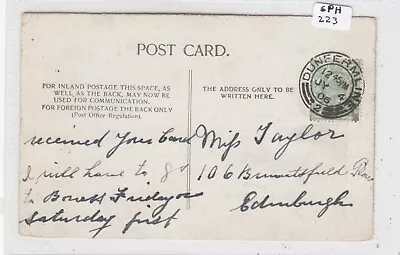 SPH
223
POST CARD.
FOR INLAND POSTAGE THIS SPACE, AS
WELL, AS THE BACK, MAY NOW BE
USED FOR COMMUNICATION.
FOR FOREIGN POSTAGE THE BACK ONLY
(Post Office Regulation).
THE ADDRESS ONLY TO BE
WRITTEN HERE.
DUNFERMLINE
12 45PM
JY
06
received your Card
I will have to go
to Boness Friday or
Saturday first
Miss Taylor
106 Bruntsfield Place
Edinburgh